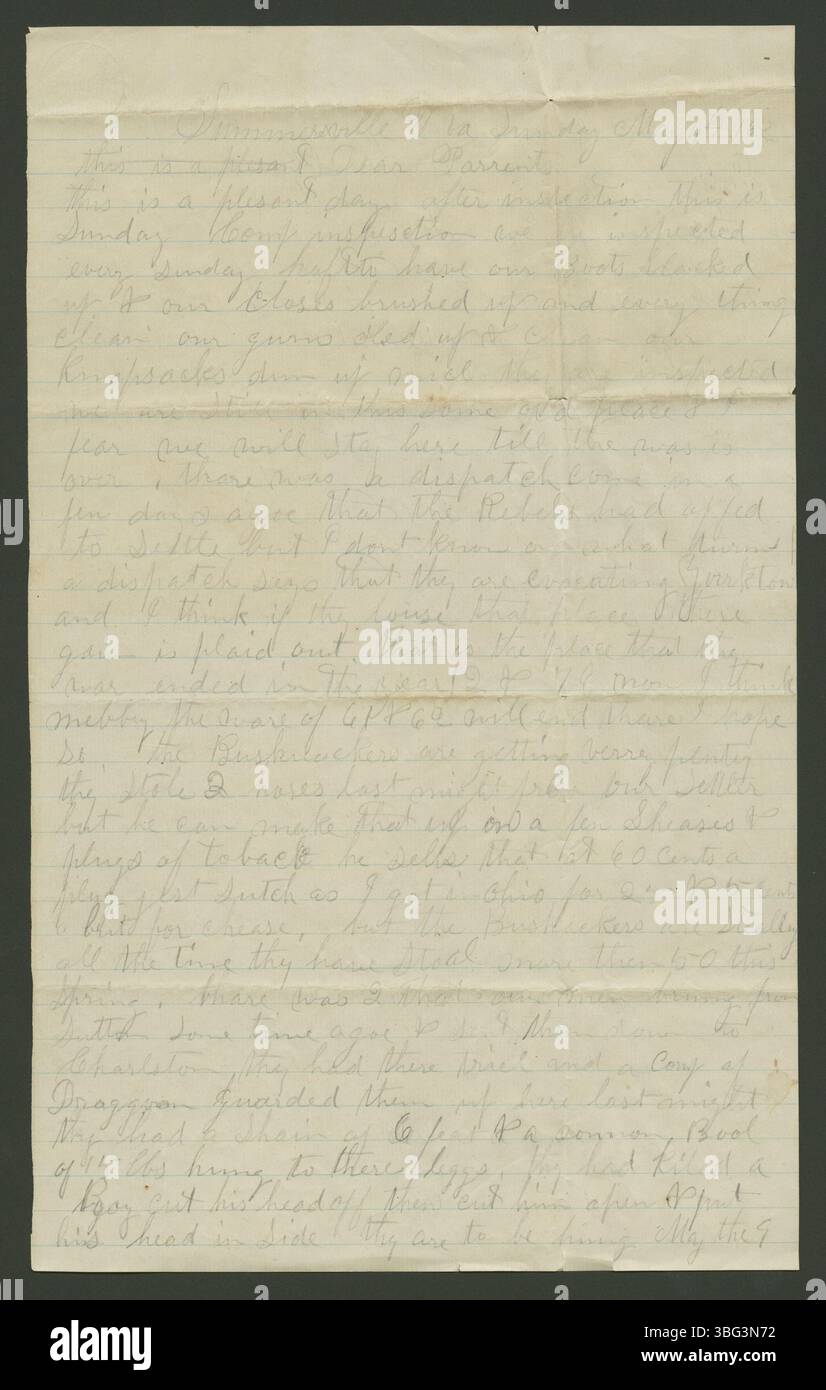 Summersville Va Sunday May
this is a plesant Dear Parrents
this is a plesant day after inspection this is
Sunday Comp inspesction we are inspected
every sunday hafto have our Boots blacked
up & our Closes brushed up and every thing
clean our guns oled up & clean our
knapsacks dun up nice they are inspected
we are still in this same old place & I
fear we will stay here till the war is
over, thare was a dispatch come in a
few days agoe that the Rebels had offed
to Settle but I dont know on what turms
a dispatch says that they are evacuating Yorktown
and I think if they louse that place there
gam is plaid out that is the place that the
war ended in the year 12 & I think
mebby the ware of 61 & 62 will end thare I hope
so. the Bushuackers are getting verry plenty
thy stole 2 horses last night from our Sutler
but he can make that up on a few Cheases &
plugs of toback he sells that at 60 cents a
plug jest sutch as I got in ohio for &
but for chease, but the Bushackers are
all the time thy have Stoal more then 50 this
Spring, thare was 2 that our men brung from
Sutton some time agoe & sent them down to
Charlston, thy had there triel and a Comp of
Draggoon guarded them up here last night
thy had a Chain of 6 feat & a connon Bool
of lbs hung to there leggs, thy had killed a
Boy cut his head off then cut him open & put
his head in side thy are to be hung May the 9
alamy
Image ID: 3BG3N72
www.alamy.com